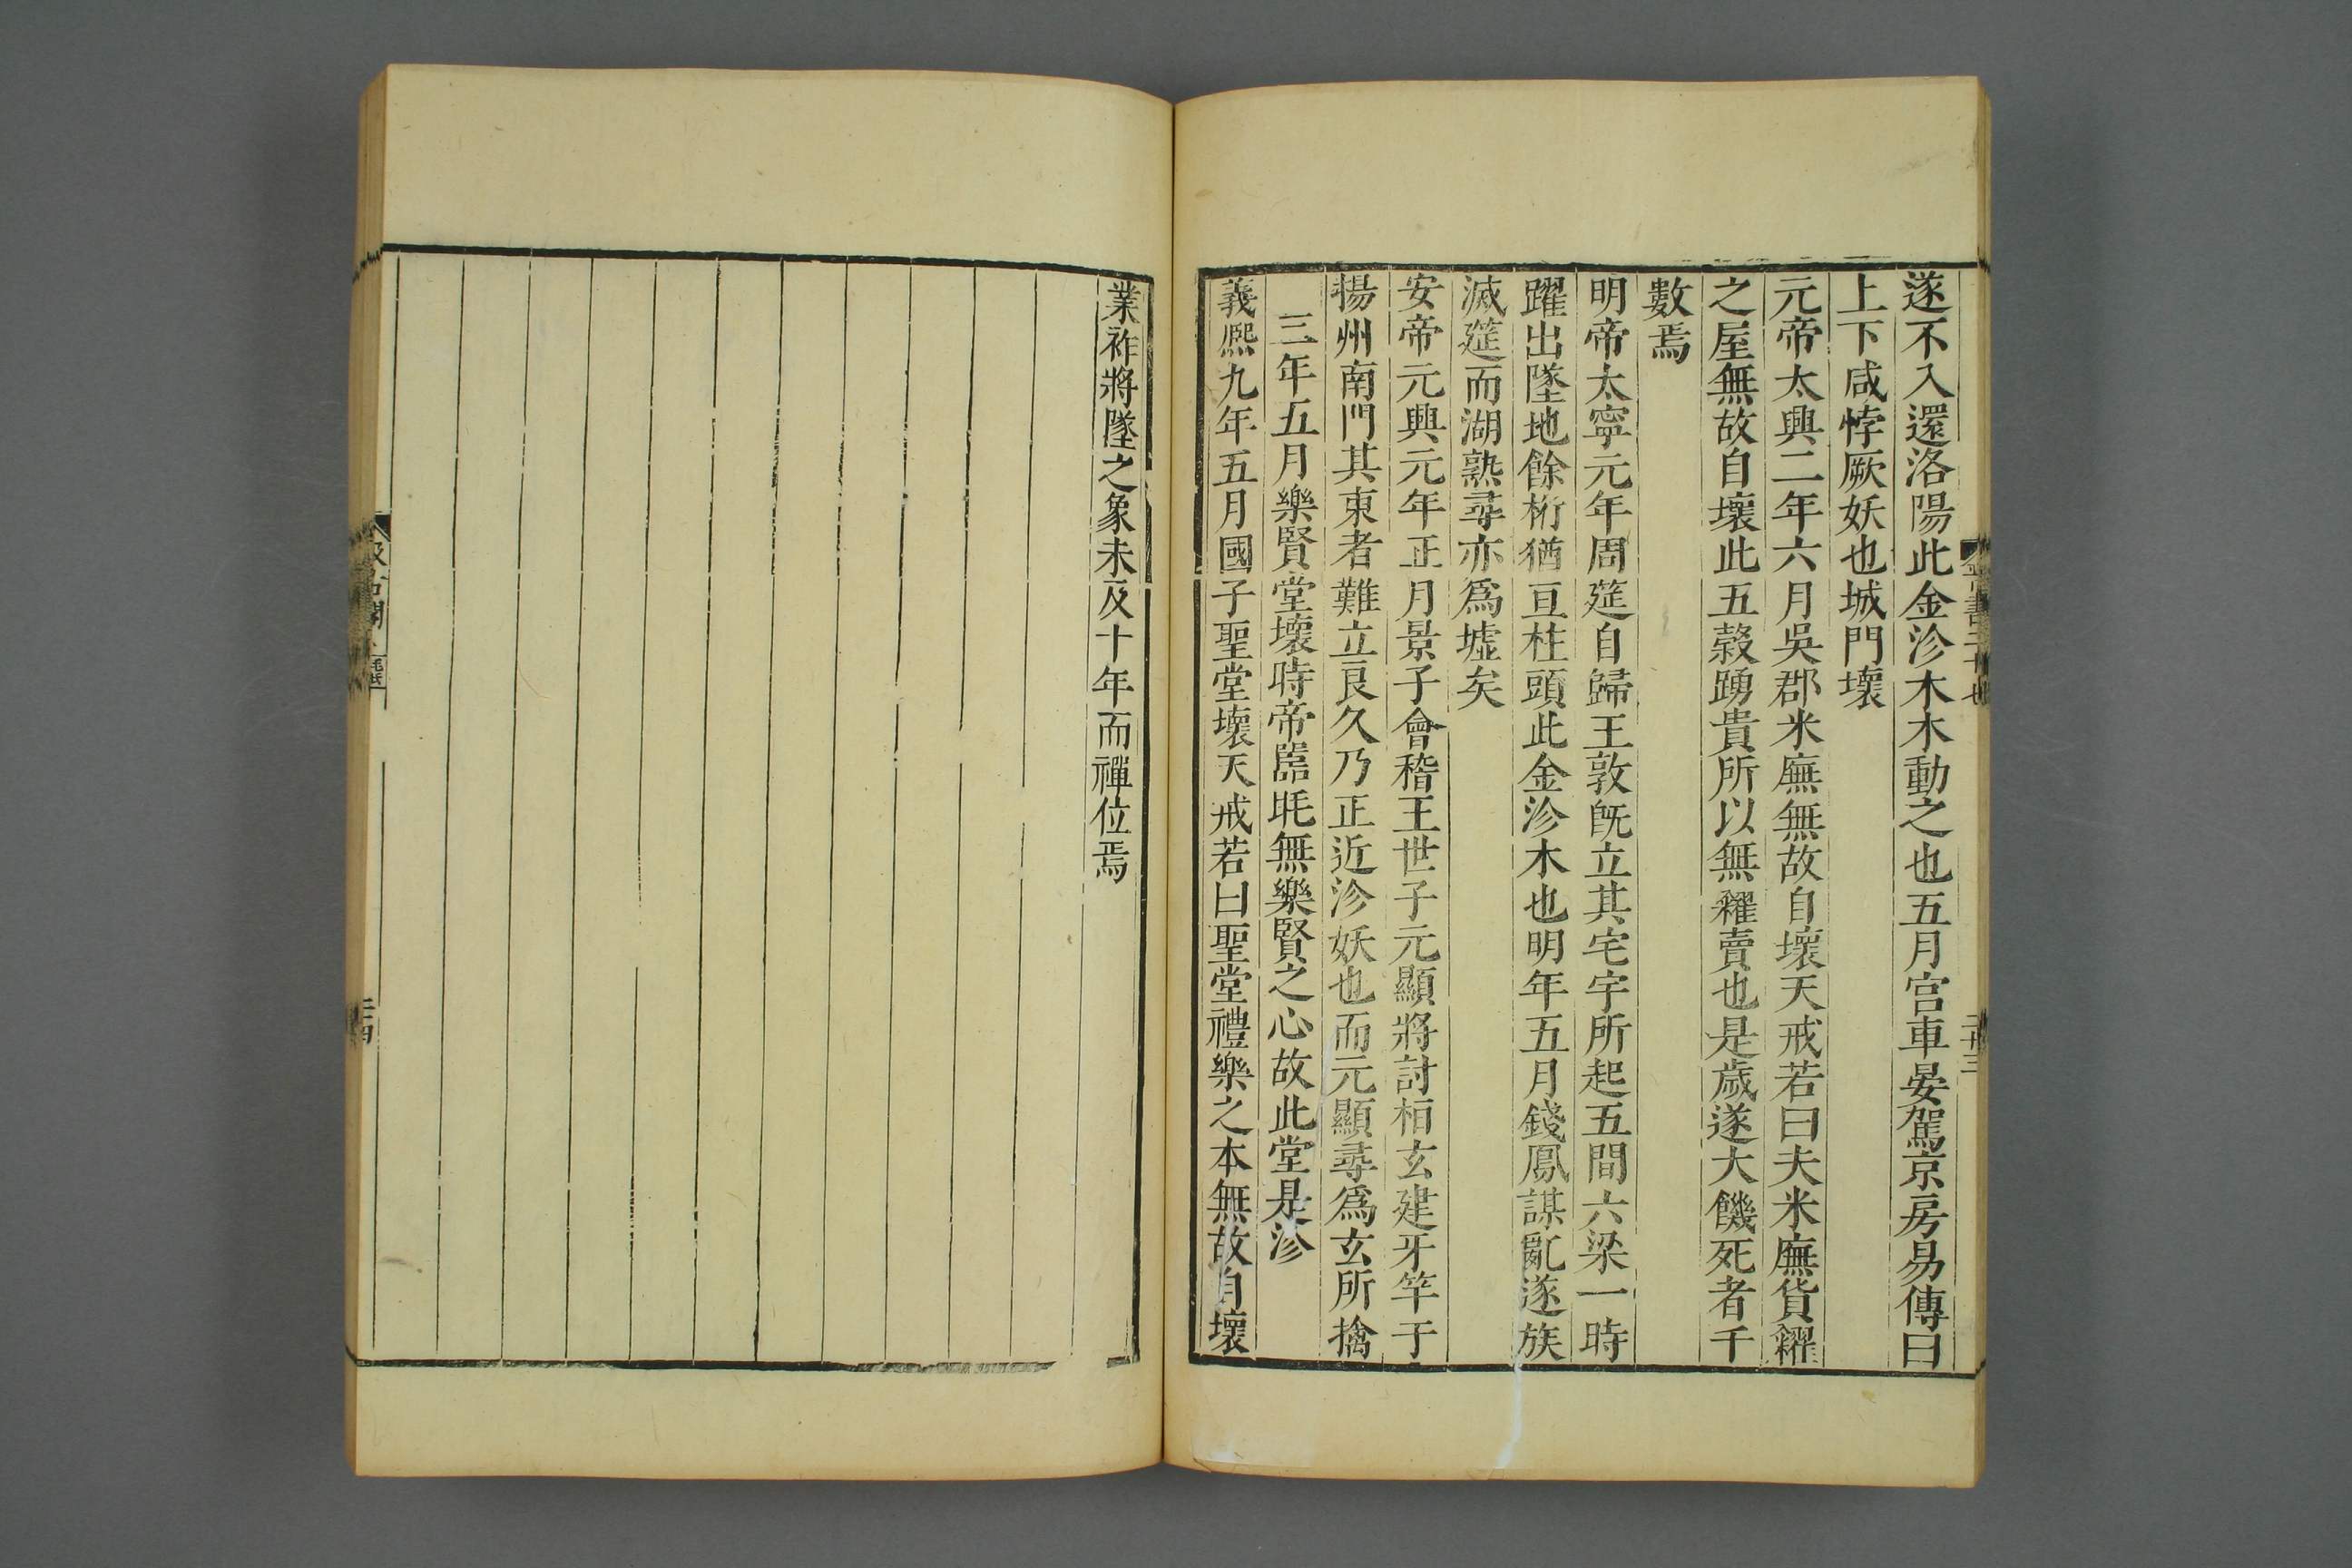 遂不入還洛陽此金沴木木動之也五月宮車晏駕京房易傳曰
上下咸悖厥妖也城門壞
元帝太興二年六月吳郡米廡無故自壞天戒若曰夫米廡貨糴
之屋無故自壞此五穀踴貴所以無糴賣也是歲遂大饑死者千
數焉
明帝太寧元年周莚自歸王敦旣立其宅宇所起五間六梁一時
躍出墜地餘桁猶亘柱頭此金沴木也明年五月錢鳳謀亂遂族
滅莚而湖熟尋亦爲墟矣
安帝元興元年正月景子會稽王世子元顯將討桓玄建牙竿于
揚州南門其東者難立良久乃正近沴妖也而元顯尋爲玄所擒
三年五月樂賢堂壞時帝嚚眊無樂賢之心故此堂是沴
義熙九年五月國子聖堂壞天戒若曰聖堂禮樂之本無故自壞
業祚將墜之象未及十年而禪位焉